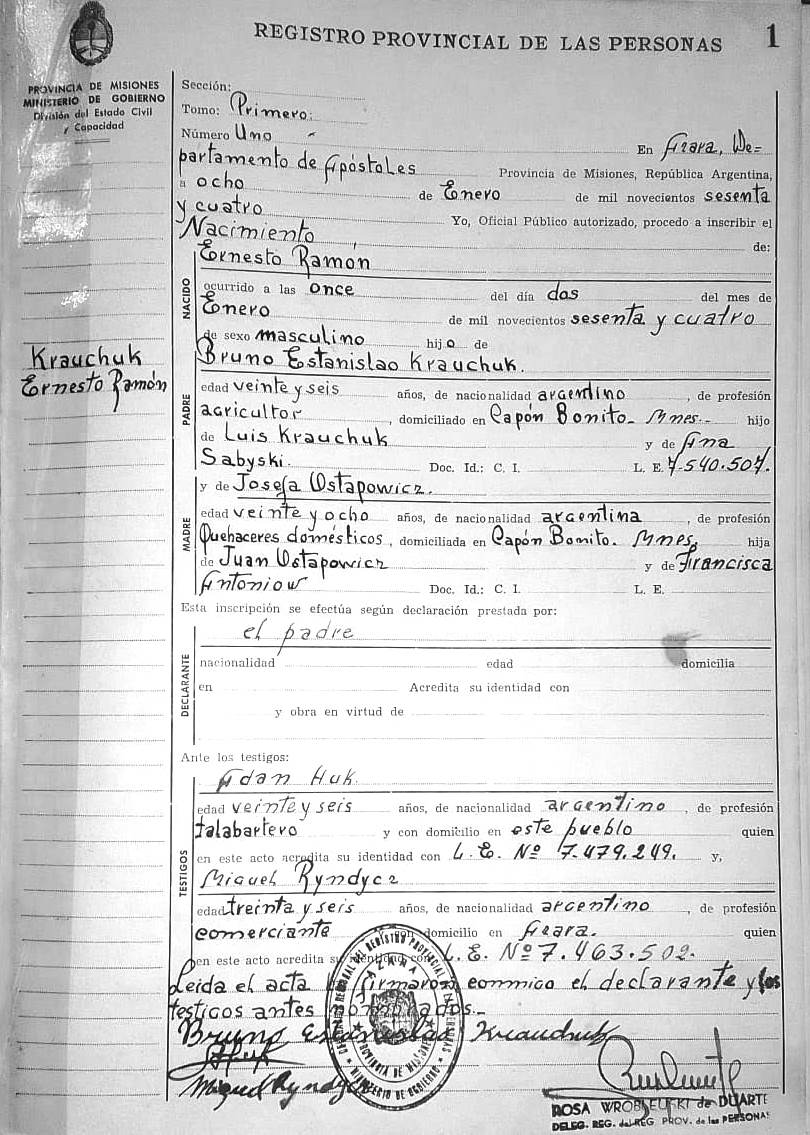 REGISTRO PROVINCIAL DE LAS PERSONAS 1
PROVINCIA DE MISIONES
MINISTERIO DE GOBIERNO
División del Estado Civil
y Capacidad
Krauchuk
Ernesto Ramón
Sección:
Tomo: Primero.
Número Uno
En Azara, De=
partamento de Apóstoles Provincia de Misiones, República Argentina,
a ocho de Enero de mil novecientos sesenta
y cuatro Yo, Oficial Público autorizado, procedo a inscribir el
Nacimiento de:
NACIDO
Ernesto Ramón
ocurrido a las once del día dos del mes de
Enero de mil novecientos sesenta y cuatro
de sexo masculino hijo de
Bruno Estanislao Krauchuk.
PADRE
edad veinte y seis años, de nacionalidad argentino, de profesión
agricultor, domiciliado en Capón Bonito. Mnes.- hijo
de Luis Krauchuk y de Ana
Sabyski. Doc. Id.: C. I. L. E. 7.540.507.
y de Josefa Ostapowicz.
MADRE
edad veinte y ocho años, de nacionalidad argentina, de profesión
Quehaceres domésticos, domiciliada en Capón Bonito. Mnes. hija
de Juan Ostapowicz y de Francisca
Antoniow Doc. Id.: C. I. L. E.
Esta inscripción se efectúa según declaración prestada por:
el padre
DECLARANTE
nacionalidad edad domicilia
en Acredita su identidad con
y obra en virtud de
Ante los testigos:
TESTIGOS
Adan Huk
edad veinte y seis años, de nacionalidad argentino, de profesión
talabartero y con domicilio en este pueblo quien
en este acto acredita su identidad con L. E. Nº 7.479.249. y,
Miguel Ryndycz
edad treinta y seis años, de nacionalidad argentino, de profesión
comerciante y con domicilio en Azara. quien
en este acto acredita su identidad con L. E. Nº 7.463.502.
Leida el acta firmaron conmigo el declarante y los
testigos antes nombrados.-
Bruno Estanislao Krauchuk
Miguel Ryndycz
AZARA
PROVINCIA DE MISIONES
MINISTERIO DE GOBIERNO
ROSA WROBLEUSKI de DUARTE
DELEG. REG. del REG. PROV. de las PERSONAS